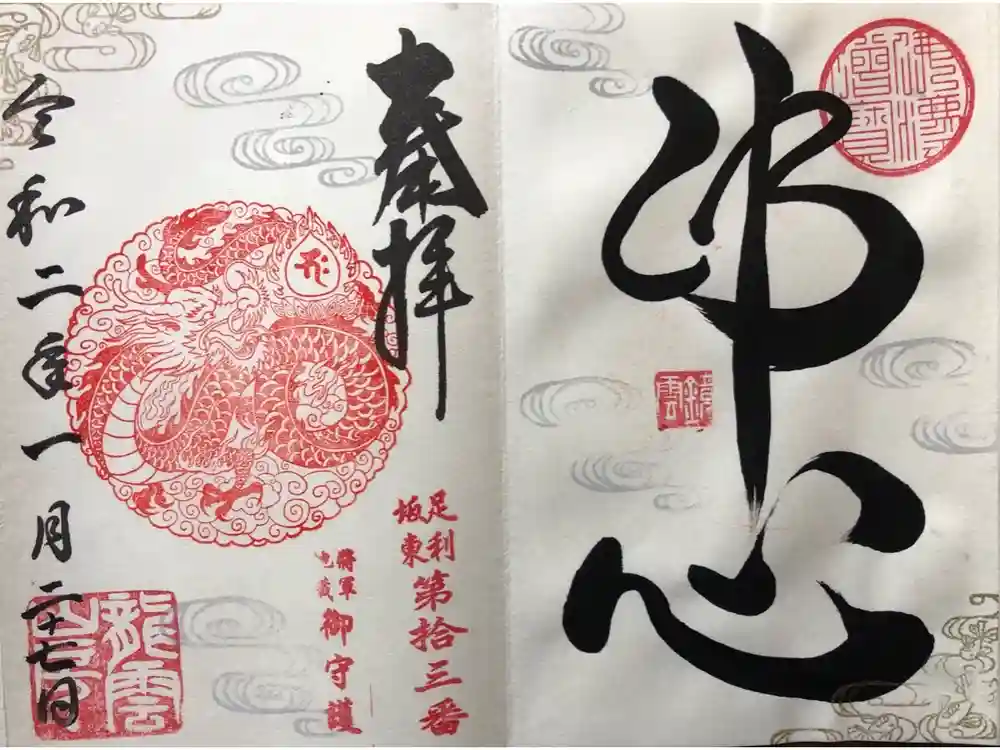 佛心
佛法僧寶
奉拝
足利
坂東
第拾三番
將軍
地蔵
御守護
令和二年一月二十七日
龍雲